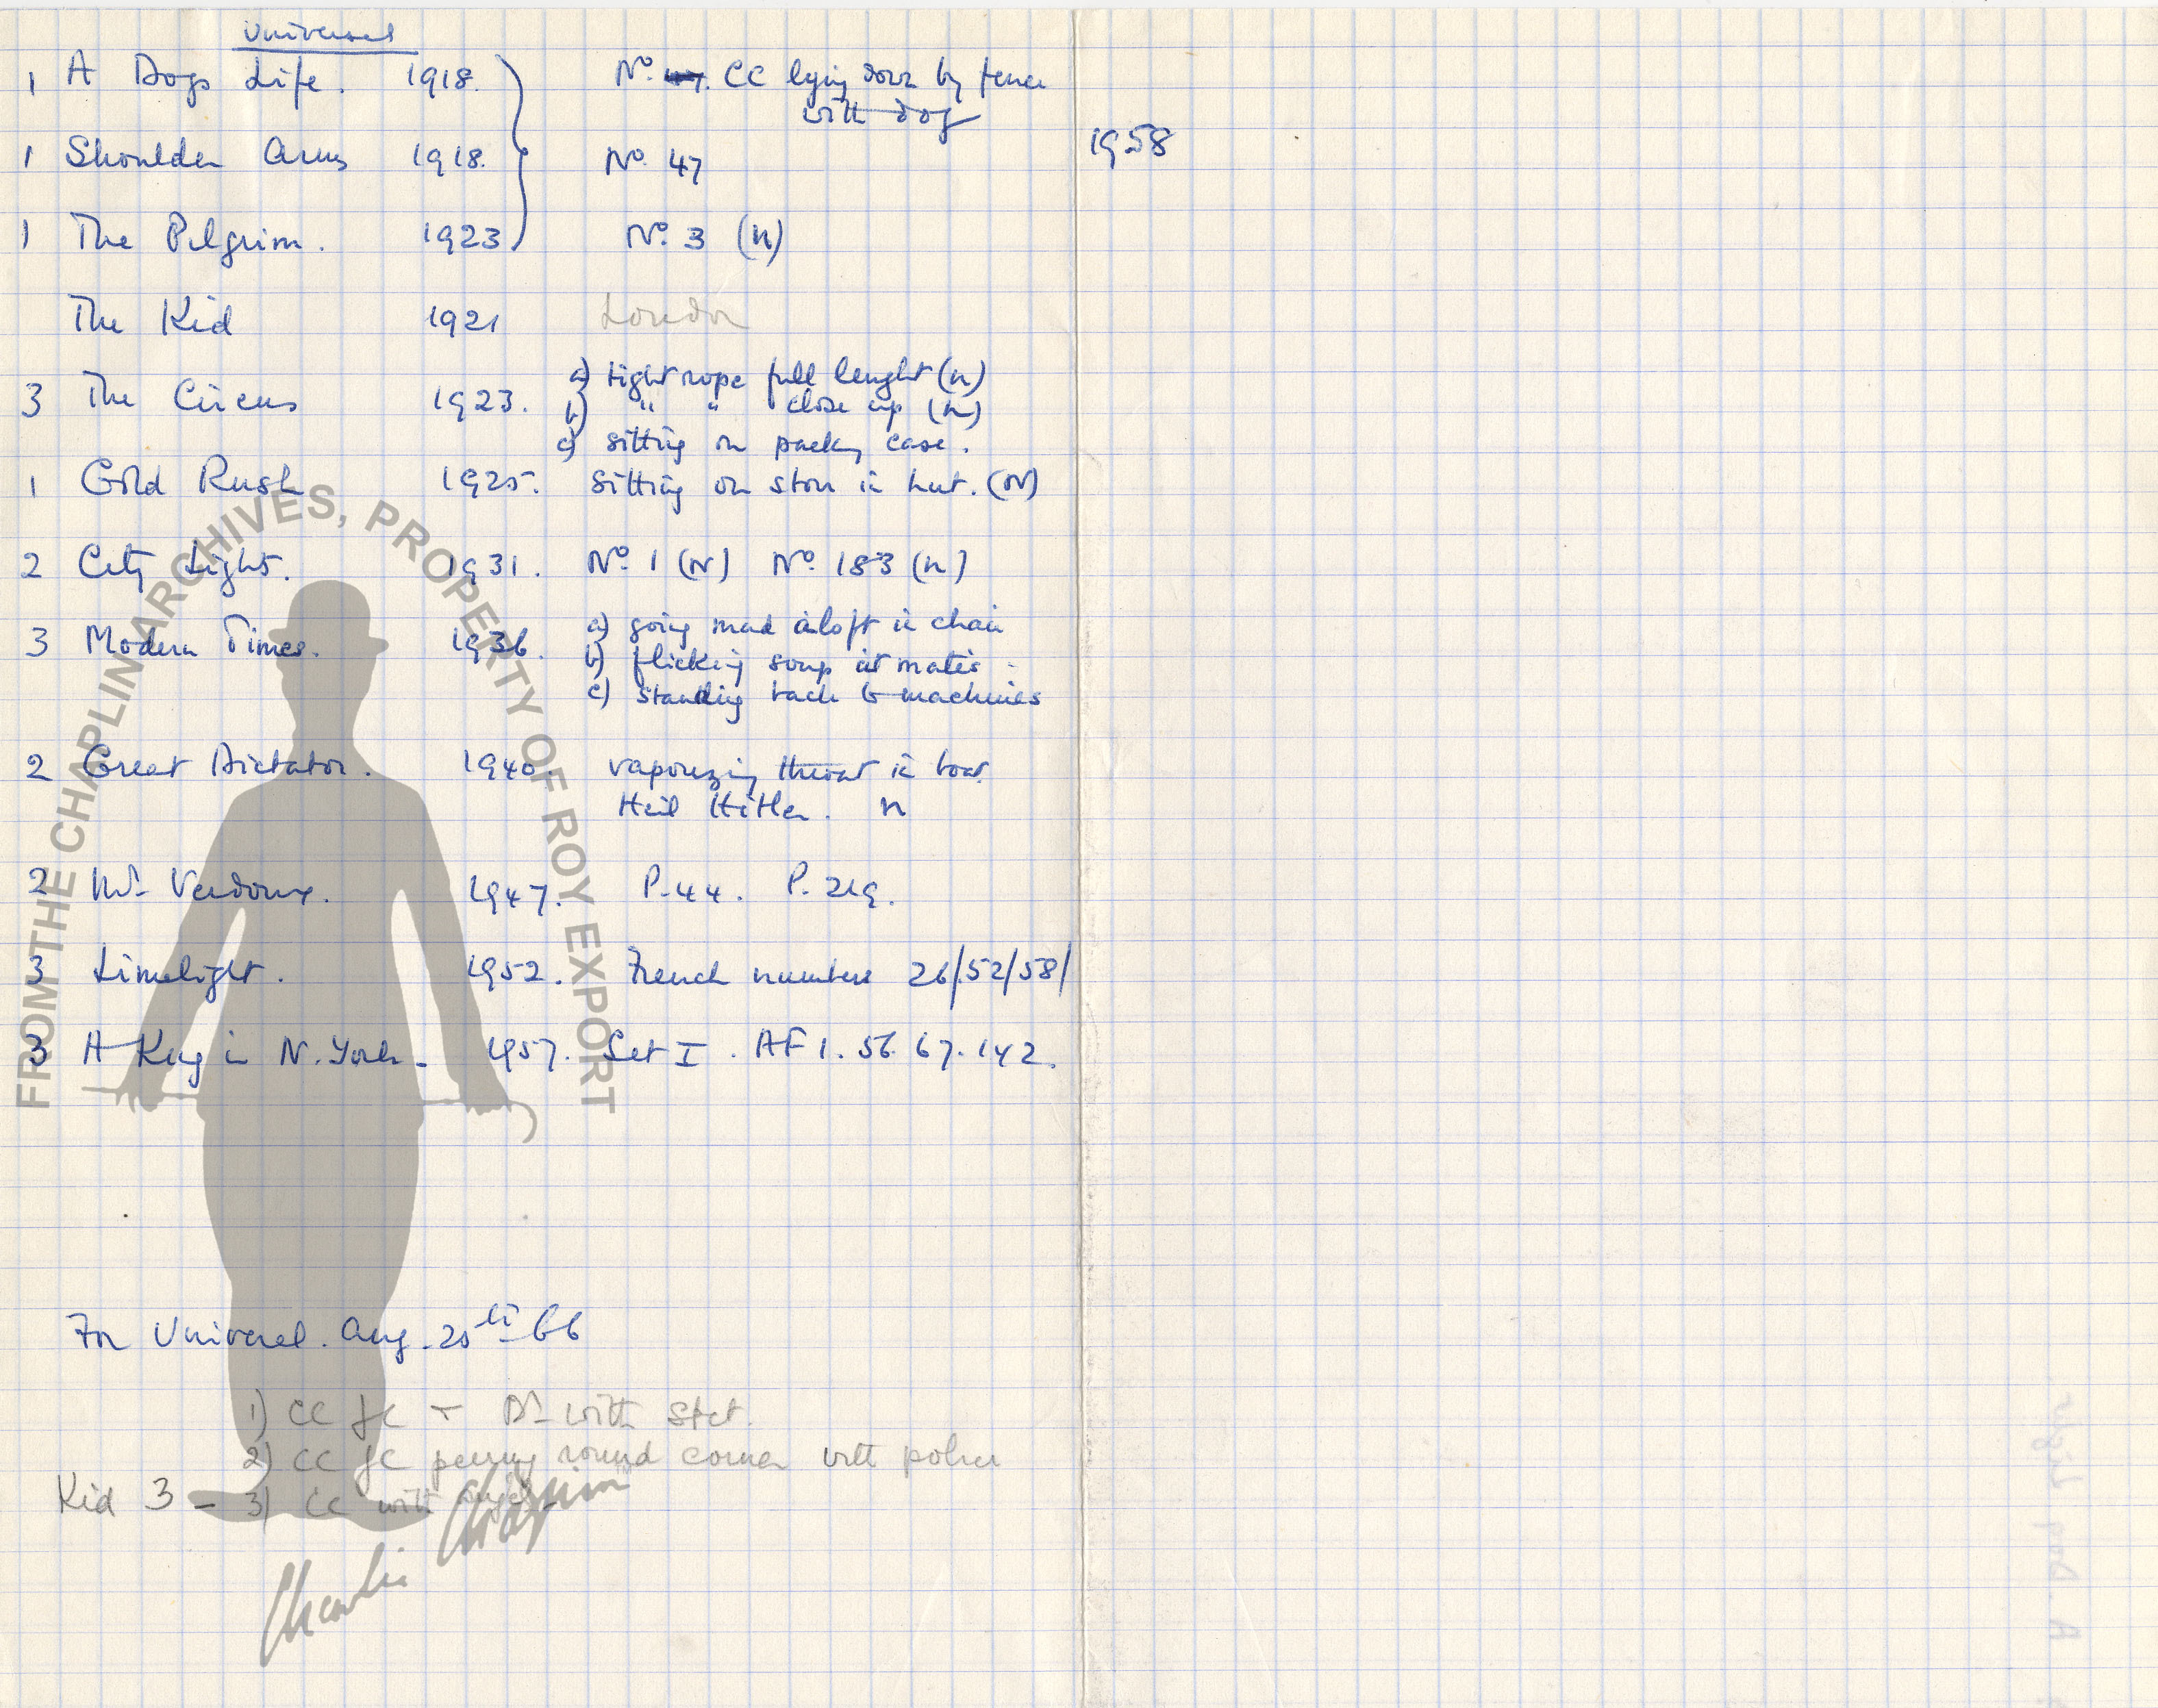 Universal
1 A Dogs Life. 1918. No. CC lying down by fence
with dog
1958
1 Shoulder Arms 1918. No. 47
1 The Pilgrim. 1923 No. 3 (n)
The Kid 1921 London
a) tight rope full lenght (n)
3 The Circus 1923. b) " " close up (n)
c) sitting on packing case.
1 Gold Rush 1925. Sitting on stove in hut. (N)
2 City Lights. 1931. No. 1 (N) No. 183 (n)
a) going mad aloft in chair
3 Modern Times. 1936. b) flicking soup at mates.
c) standing back to machines
2 Great Dictator. 1940. vaporizing throat in boat.
Heil Hitler. n
2 Mr Verdoux. 1947. P.44. P.219.
3 Limelight. 1952. French numbers 26/52/58/
3 A King in N. York - 1957. Set I. AF 1. 56. 67. 142.
For Universal. Aug. 20th 66
1) CC JC + Dr with
2) CC JC peering round corner with police
Kid 3 - 3) CC with
FROM THE CHAPLIN ARCHIVES, PROPERTY OF ROY EXPORT
Charlie Chaplin